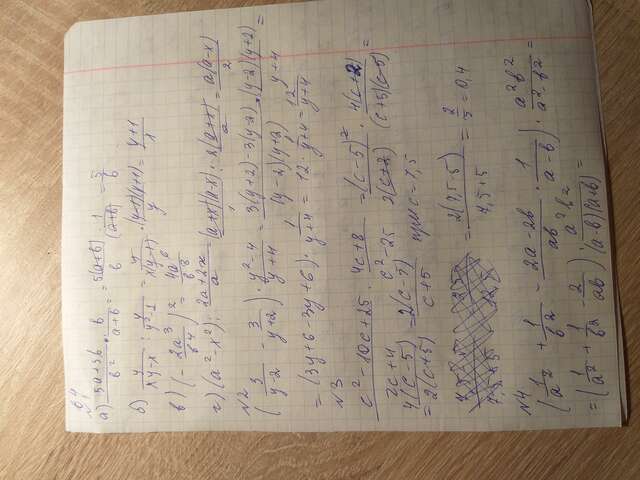 а) (5a+5b)/b² · b/(a+b) = 5(a+b)/b · 1/(a+b) = 5/b
б) y/(xy-x) : y/(y²-1) = y/(x(y-1)) · (y-1)(y+1)/y = (y+1)/x
в) (-2a³/b⁴)² = 4a⁶/b⁸
г) (a²-x²) : (2a+2x)/a = (a+x)(a-x) : 2(a+x)/a = a(a-x)/2
№2
(3/(y-2) - 3/(y+2)) · (y²-4)/(y+4) = (3(y+2)-3(y-2))/((y-2)(y+2)) · (y-2)(y+2)/(y+4) =
= (3y+6-3y+6) · 1/(y+4) = 12 · 1/(y+4) = 12/(y+4)
№3
(c²-10c+25)/(2c+4) · (4c+8)/(c²-25) = (c-5)²/(2(c+2)) · 4(c+2)/((c+5)(c-5)) =
= 4(c-5)/(2(c+5)) = 2(c-5)/(c+5) при c=7,5
= 2(7,5-5)/(7,5+5) = 2/5 = 0,4
№4
(1/a² + 1/b² - (2a-2b)/ab · 1/(a-b)) · a²b²/(a²-b²) =
= (1/a² + 1/b² - 2/ab) · a²b²/((a-b)(a+b)) =